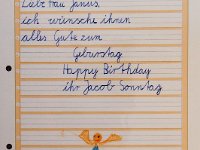 Liebe Frau Janus,
ich wünsche ihnen
alles Gute zum
Geburstag
Happy Birthday
ihr Jacob Sonntag